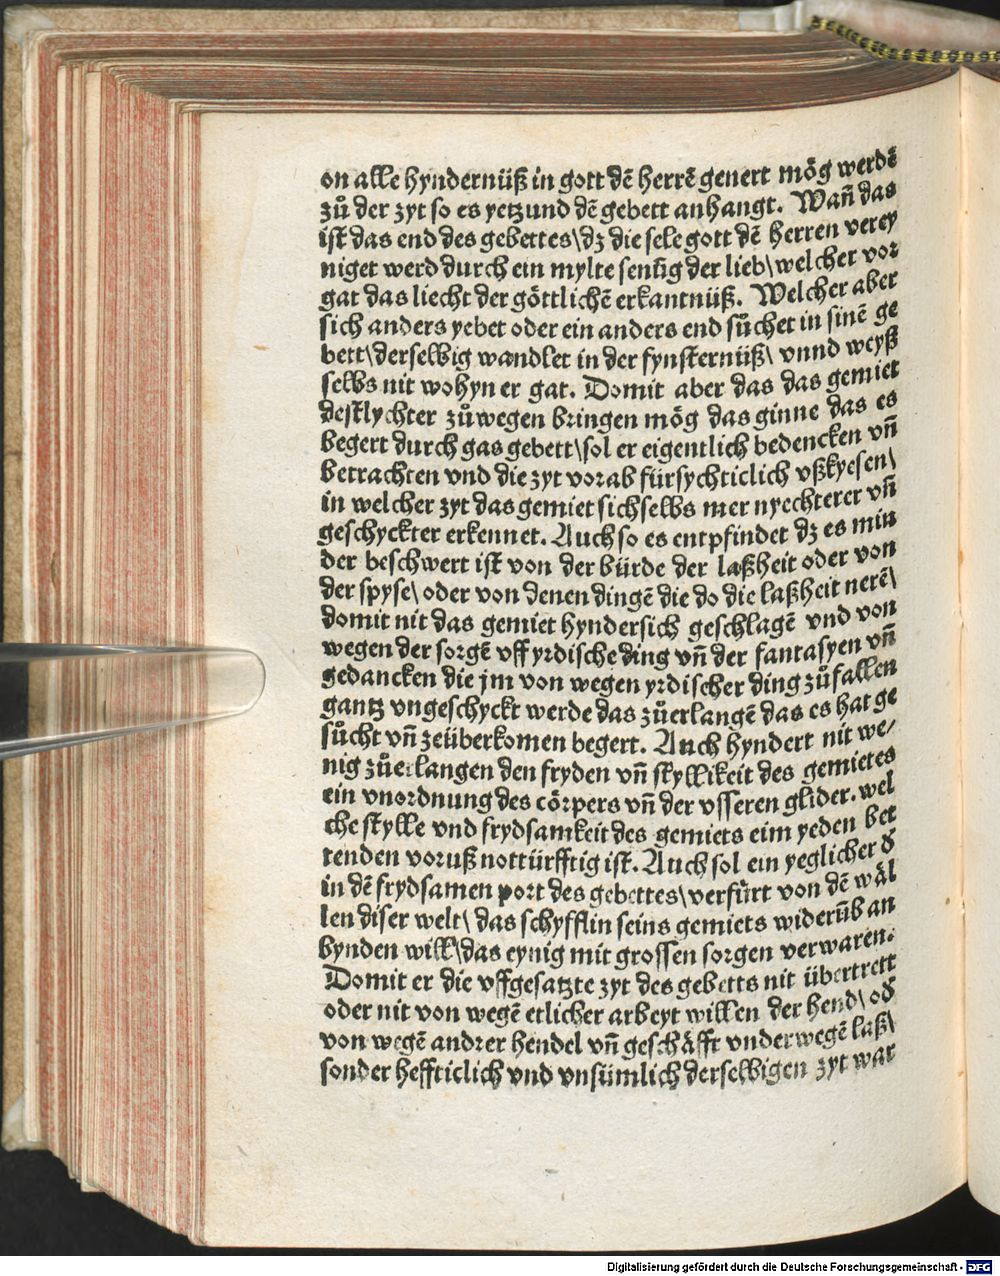 on alle hyndernüß in gott dē herrē genert mög werdē
zů der zyt so es yetzund dē gebett anhangt. Wañ das
ist das end des gebettes\ dz die sele gott dē herren verey
niget werd durch ein mylte senfftig der lieb\ welcher vor
gat das liecht der göttlichē erkantnüß. Welcher aber
sich anders yebet oder ein anders end sůchet in sinē ge
bett\ derselbig wandlet in der fynsternüß\ vnnd weyß
selbs nit wohyn er gat. Domit aber das das gemiet
destlychter zůwegen bringen mög das ginne das es
begert durch gas gebett\ sol er eigentlich bedencken vñ
betrachten vnd die zyt vorab fürsychticlich vßkyesen\
in welcher zyt das gemiet sichselbs mer nyechterer vñ
geschyckter erkennet. Auch so es entpfindet dz es min
der beschwert ist von der bürde der laßheit oder von
der spyse\ oder von denen dingē die do die laßheit nerē\
domit nit das gemiet hyndersich geschlagē vnd von
wegen der sorgē vff yrdische ding vñ der fantasyen vñ
gedancken die jm von wegen yrdischer ding zůfallen
gantz vngeschyckt werde das zůerlangē das es hat ge
sůcht vñ zeüberkomen begert. Auch hyndert nit we/
nig zůerlangen den fryden vñ styllikeit des gemietes
ein vnordnung des cörpers vñ der vsseren glider. wel
che stylle vnd frydsamkeit des gemiets eim yeden bet
tenden voruß nottürfftig ist. Auch sol ein yeglicher d̕
in dē frydsamen port des gebettes\ verfürt von dē wäl
len diser welt\ das schyfflin seins gemiets widerūb an
bynden will\ das eynig mit grossen sorgen verwaren.
Domit er die vffgesatzte zyt des gebetts nit übertrett
oder nit von wegē etlicher arbeyt willen der hend\ od̕
von wegē andrer hendel vñ geschäfft vnderwegē laß\
sonder heffticlich vnd vnsümlich derselbigen zyt war
Digitalisierung gefördert durch die Deutsche Forschungsgemeinschaft - DFG